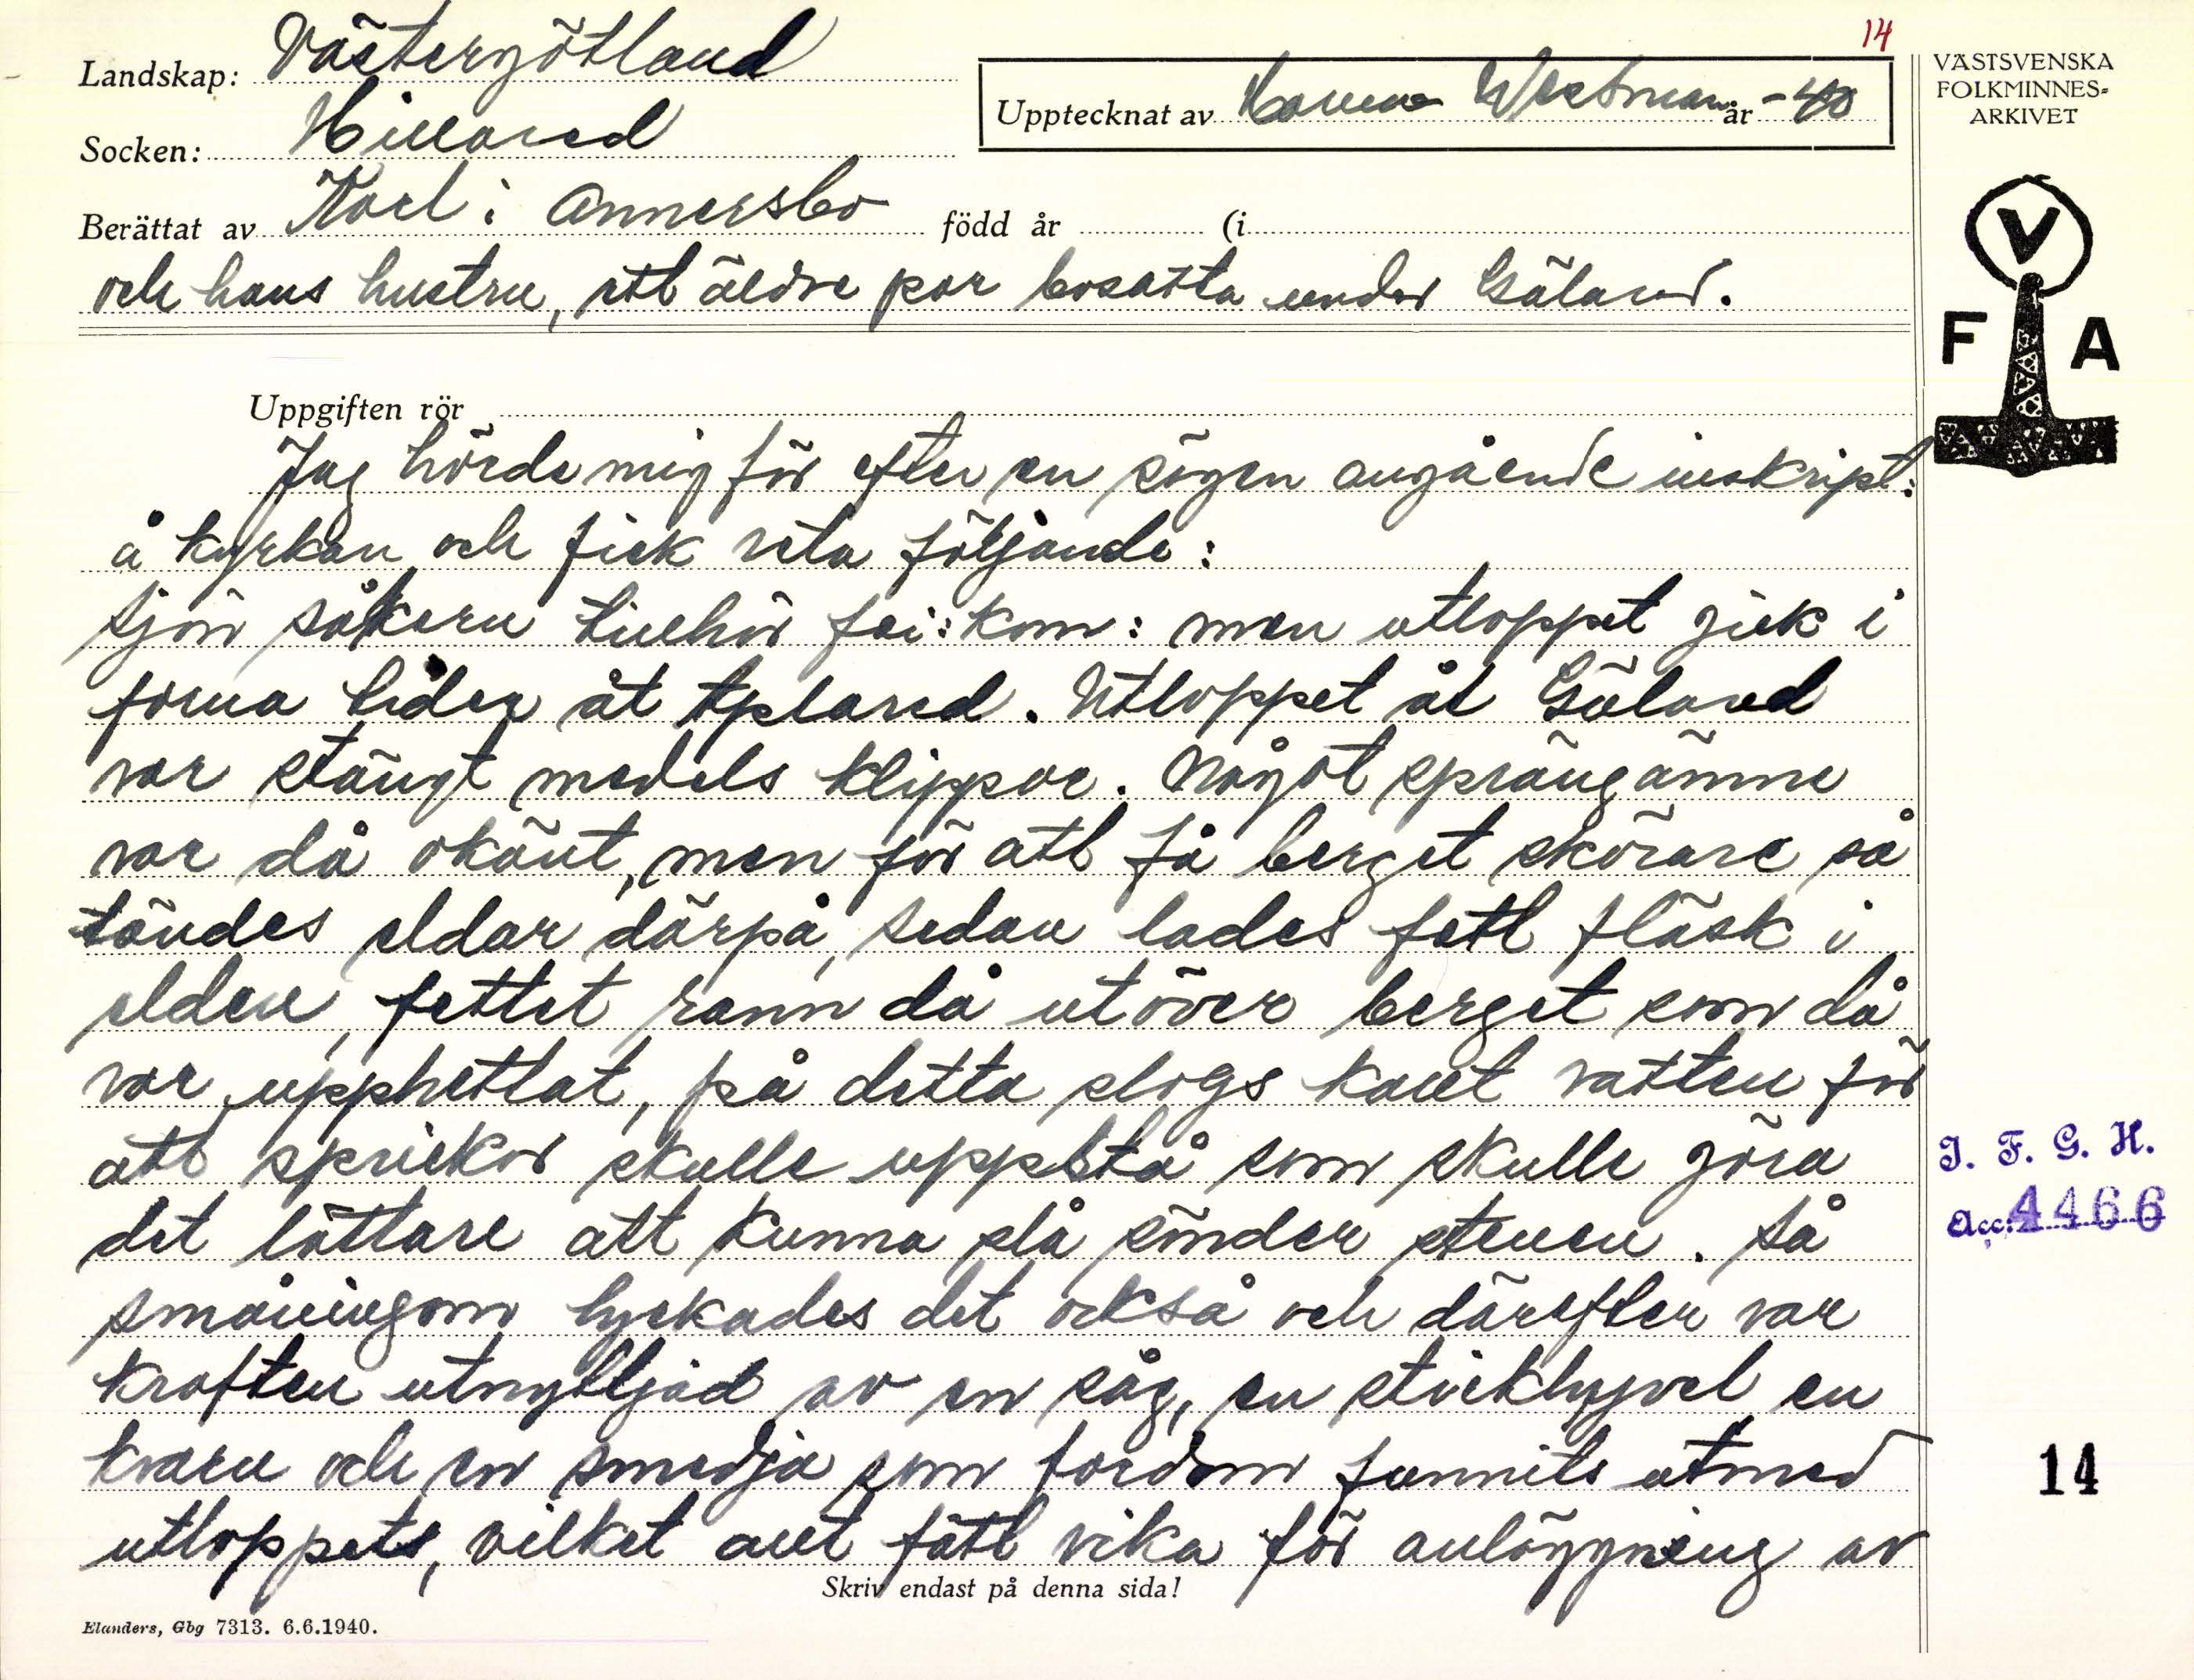 14
Landskap: Västergötland
Socken: Hillared
Upptecknat av Westman år -40
Berättat av Karl i Annersbo född år (i
och hans hustru, ett äldre par bosatta under Gälared.
VÄSTSVENSKA
FOLKMINNES-
ARKIVET
V
F A
Uppgiften rör
Jag hörde mig för efter en sägen angående inskript:
å kyrkan och fick veta följande:
Sjön Såken tillhör kom: men utloppet gick i
forna tider åt Aplared. Utloppet åt Gälared
var stängt medels klippor. Något sprängämne
var då okänt, men för att få berget skörare så
tändes eldar därpå, sedan lades fett fläsk i
elden, fettet rann då utöver berget som då
var upphettat, på detta slogs kallt vatten för
att sprickor skulle uppstå som skulle göra
det lättare att kunna slå sönder stenen. Så
småningom lyckades det också och därefter var
kraften utnyttjad av en såg, en stickhyvel en
kvarn och en smedja som fordom funnits utmed
utloppets, vilket allt fått vika för anläggning av
Skriv endast på denna sida!
Elanders, Gbg 7313. 6.6.1940.
I. F. G. H.
Acc: 4466
14